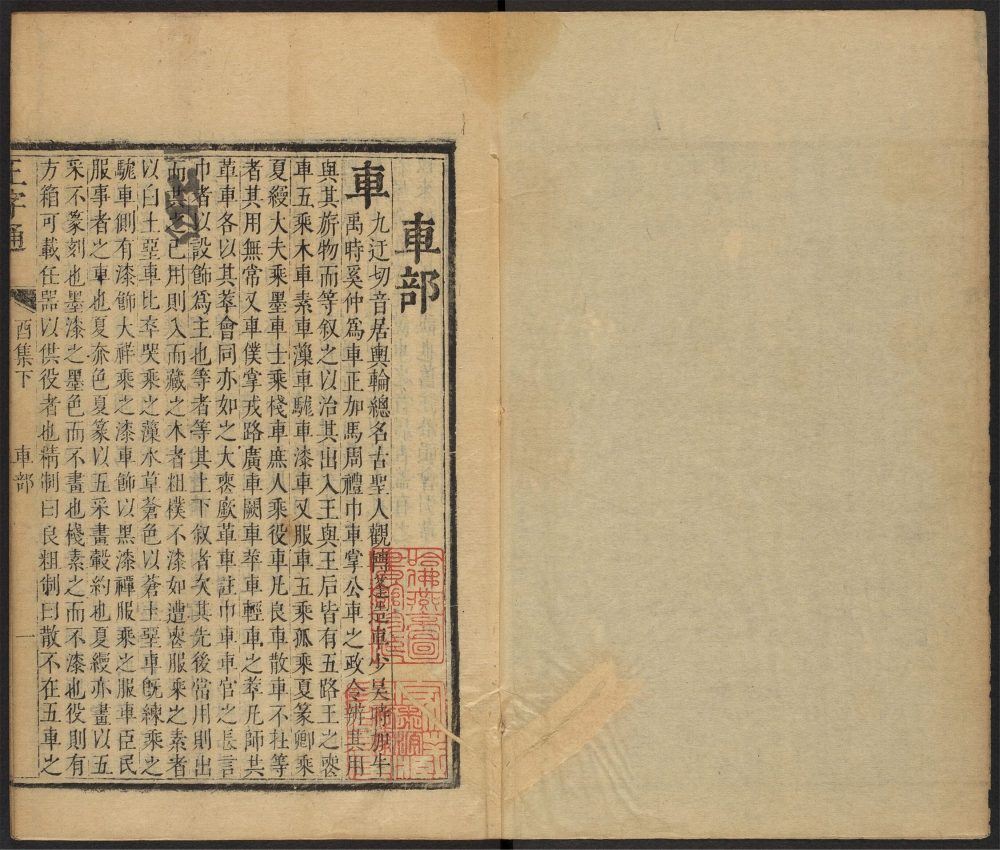 車部
車九迂切音居輿輪總名古聖人觀轉蓬造車少昊時加牛
禹時奚仲爲車正加馬周禮巾車掌公車之政令辨其用
與其旂物而等叙之以治其出入王與王后皆有五路王之喪
車五乘木車素車薻車駹車漆車又服車五乘孤乘夏篆卿乘
夏縵大夫乘墨車士乘棧車庶人乘役車凡良車散車不在等
者其用無常又車僕掌戎路廣車闕車苹車輕車之萃凡師共
革車各以其萃會同亦如之大喪廞革車註巾車車官之長言
巾者以設飾爲主也等者等其上下叙者次其先後常用則出
而其已用則入而藏之木者粗樸不漆如遭喪服乘之素者
以白土堊車比卒哭乘之薻水草蒼色以蒼土堊車旣練乘之
駹車側有漆飾大祥乘之漆車飾以黑漆禫服乘之服車臣民
服事者之車也夏赤色夏篆以五采畫轂約也夏縵亦畫以五
采不篆刻也墨漆之墨色而不畫也棧素之而不漆也役則有
方箱可載任器以供役者也精制曰良粗制曰散不在五車之
正字通
酉集下
車部
一